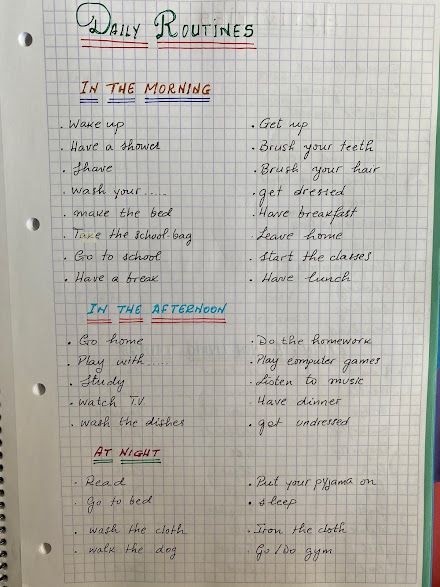 DAILY ROUTINES
IN THE MORNING
. Wake up . Get up
. Have a shower . Brush your teeth
. Shave . Brush your hair
. wash your ..... . get dressed
. make the bed . Have breakfast
. Take the school-bag . Leave home
. Go to school . Start the classes
. Have a break . Have lunch
IN THE AFTERNOON
. Go home . Do the homework
. Play with ..... . Play computer games
. Study . Listen to music
. watch TV . Have dinner
. wash the dishes . get undressed
AT NIGHT
. Read . Put your pyjama on
. Go to bed . sleep
. wash the cloth . Iron the cloth
. walk the dog . Go/Do gym